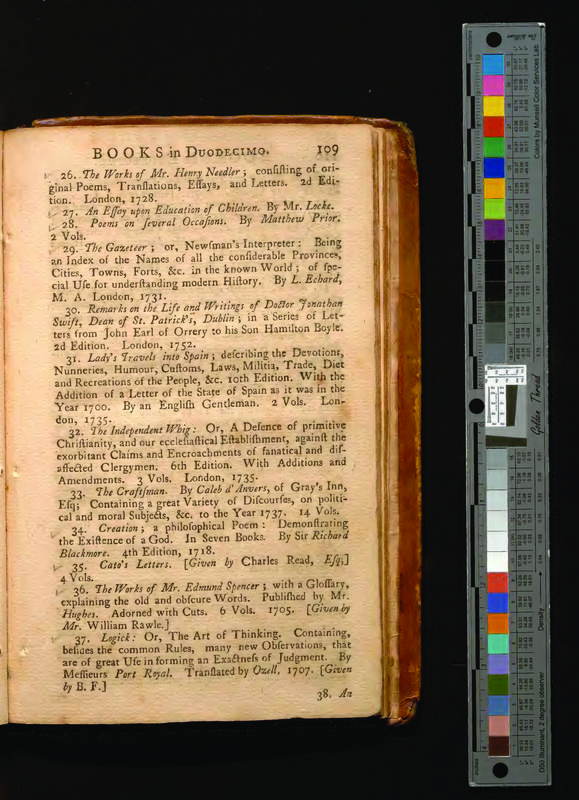 BOOKS in DUODECIMO. 109
26. The Works of Mr. Henry Needler; conſiſting of ori-
ginal Poems, Tranſlations, Eſſays, and Letters. 2d Edi-
tion. London, 1728.
27. An Eſſay upon Education of Children. By Mr. Locke.
28. Poems on ſeveral Occaſions. By Matthew Prior.
2 Vols.
29. The Gazeteer; or, Newſman's Interpreter: Being
an Index of the Names of all the conſiderable Provinces,
Cities, Towns, Forts, &c. in the known World; of ſpe-
cial Uſe for underſtanding modern Hiſtory. By L. Echard,
M. A. London, 1731.
30. Remarks on the Life and Writings of Doctor Jonathan
Swift, Dean of St. Patrick's, Dublin; in a Series of Let-
ters from John Earl of Orrery to his Son Hamilton Boyle.
2d Edition. London, 1752.
31. Lady's Travels into Spain; deſcribing the Devotions,
Nunneries, Humour, Cuſtoms, Laws, Militia, Trade, Diet
and Recreations of the People, &c. 10th Edition. With the
Addition of a Letter of the State of Spain as it was in the
Year 1700. By an Engliſh Gentleman. 2 Vols. Lon-
don, 1735.
32. The Independent Whig: Or, A Defence of primitive
Chriſtianity, and our eccleſiaſtical Eſtabliſhment, againſt the
exorbitant Claims and Encroachments of fanatical and diſ-
affected Clergymen. 6th Edition. With Additions and
Amendments. 3 Vols. London, 1735.
33. The Craftſman. By Caleb d'Anvers, of Gray's Inn,
Eſq; Containing a great Variety of Diſcourſes, on politi-
cal and moral Subjects, &c. to the Year 1737. 14 Vols.
34. Creation; a philoſophical Poem: Demonſtrating
the Exiſtence of a God. In Seven Books. By Sir Richard
Blackmore. 4th Edition, 1718.
35. Cato's Letters. [Given by Charles Read, Eſq;]
4 Vols.
36. The Works of Mr. Edmund Spencer; with a Gloſſary,
explaining the old and obſcure Words. Publiſhed by Mr.
Hughes. Adorned with Cuts. 6 Vols. 1705. [Given by
Mr. William Rawle.]
37. Logick: Or, The Art of Thinking. Containing,
beſides the common Rules, many new Obſervations, that
are of great Uſe in forming an Exactneſs of Judgment. By
Meſſieurs Port Royal. Tranſlated by Ozell, 1707. [Given
by B. F.]
38. An
Colors by Munsell Color Services Lab
Golden Thread
Density
D50 Illuminant, 2 degree observer